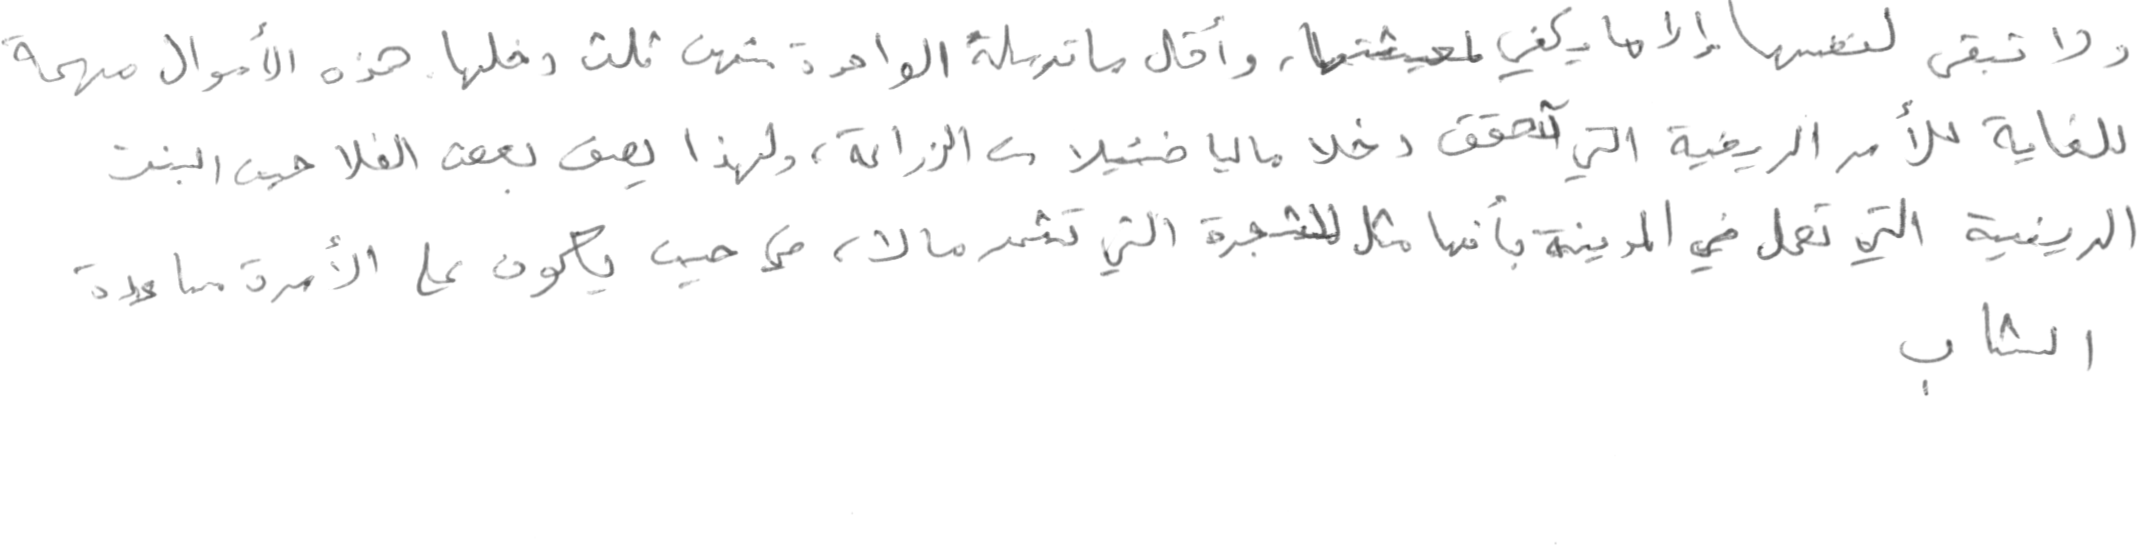 ولا تبقى لنفسها إلا ما يكفي لمعيشتها، وأقل ما ترسله الواحدة منهن ثلث دخلها. هذه الأموال مهمة
للغاية للأسر الريفية التي تحقق دخلا ماليا ضئيلا من الزراعة، ولهذا يصف بعض الفلاحين البنت
الريفية التي تعمل في المدينة بأنها مثل الشجرة التي تثمر مالا، في حين يكون على الأسرة مساعدة
الشاب